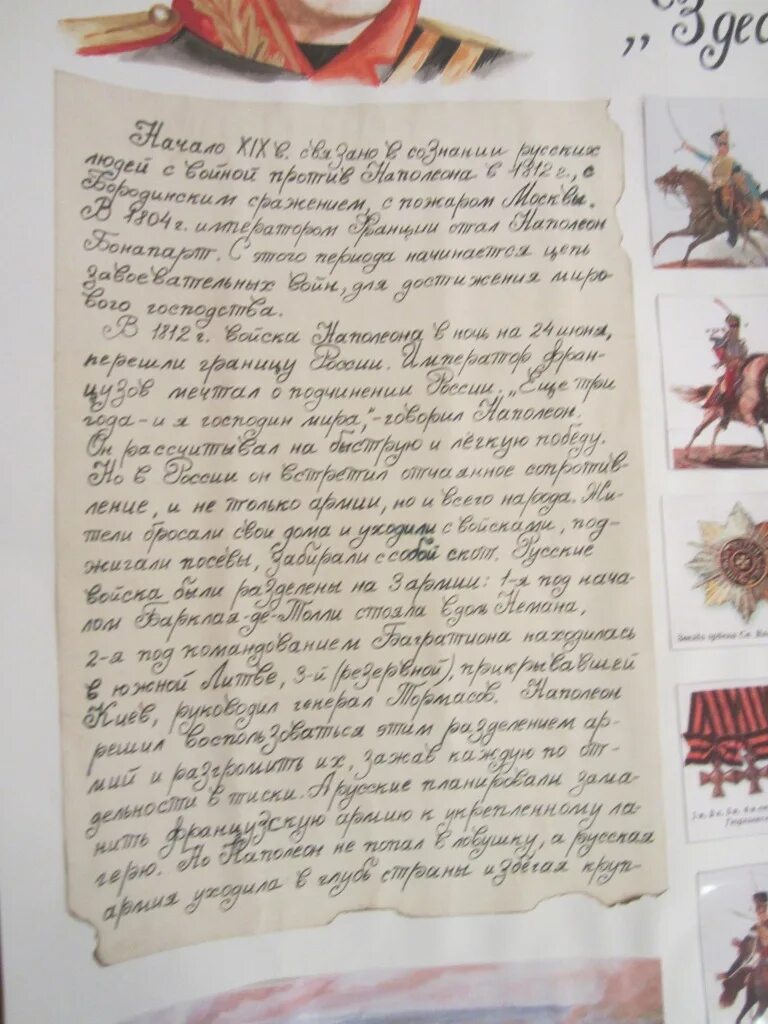 „Здес
Начало XIX в. связано в сознании русских
людей с войной против Наполеона в 1812 г., с
Бородинским сражением, с пожаром Москвы.
В 1804 г. императором Франции стал Наполеон
Бонапарт. С этого периода начинается цепь
завоевательных войн, для достижения миро-
вого господства.
В 1812 г. войска Наполеона в ночь на 24 июня,
перешли границу России. Император фран-
цузов мечтал о подчинении России. „Еще три
года - и я господин мира,"- говорил Наполеон.
Он рассчитывал на быструю и лёгкую победу.
Но в России он встретил отчаянное сопротив-
ление, и не только армии, но и всего народа. Жи-
тели бросали свои дома и уходили с войсками, под-
жигали посевы, забирали с собой скот. Русские
войска были разделены на 3 армии: 1-я под нача-
лом Барклая-де-Толли стояла вдоль Немана,
2-я под командованием Багратиона находилась
в южной Литве, 3-й (резервной), прикрывавшей
Киев, руководил генерал Тормасов. Наполеон
решил воспользоваться этим разделением ар-
мий и разгромить их, зажав каждую по от-
дельности в тиски. А русские планировали зама-
нить французскую армию к укрепленному ла-
герю. Но Наполеон не попал в ловушку, а русская
армия уходила в глубь страны избегая круп-
Звезда ордена Св.